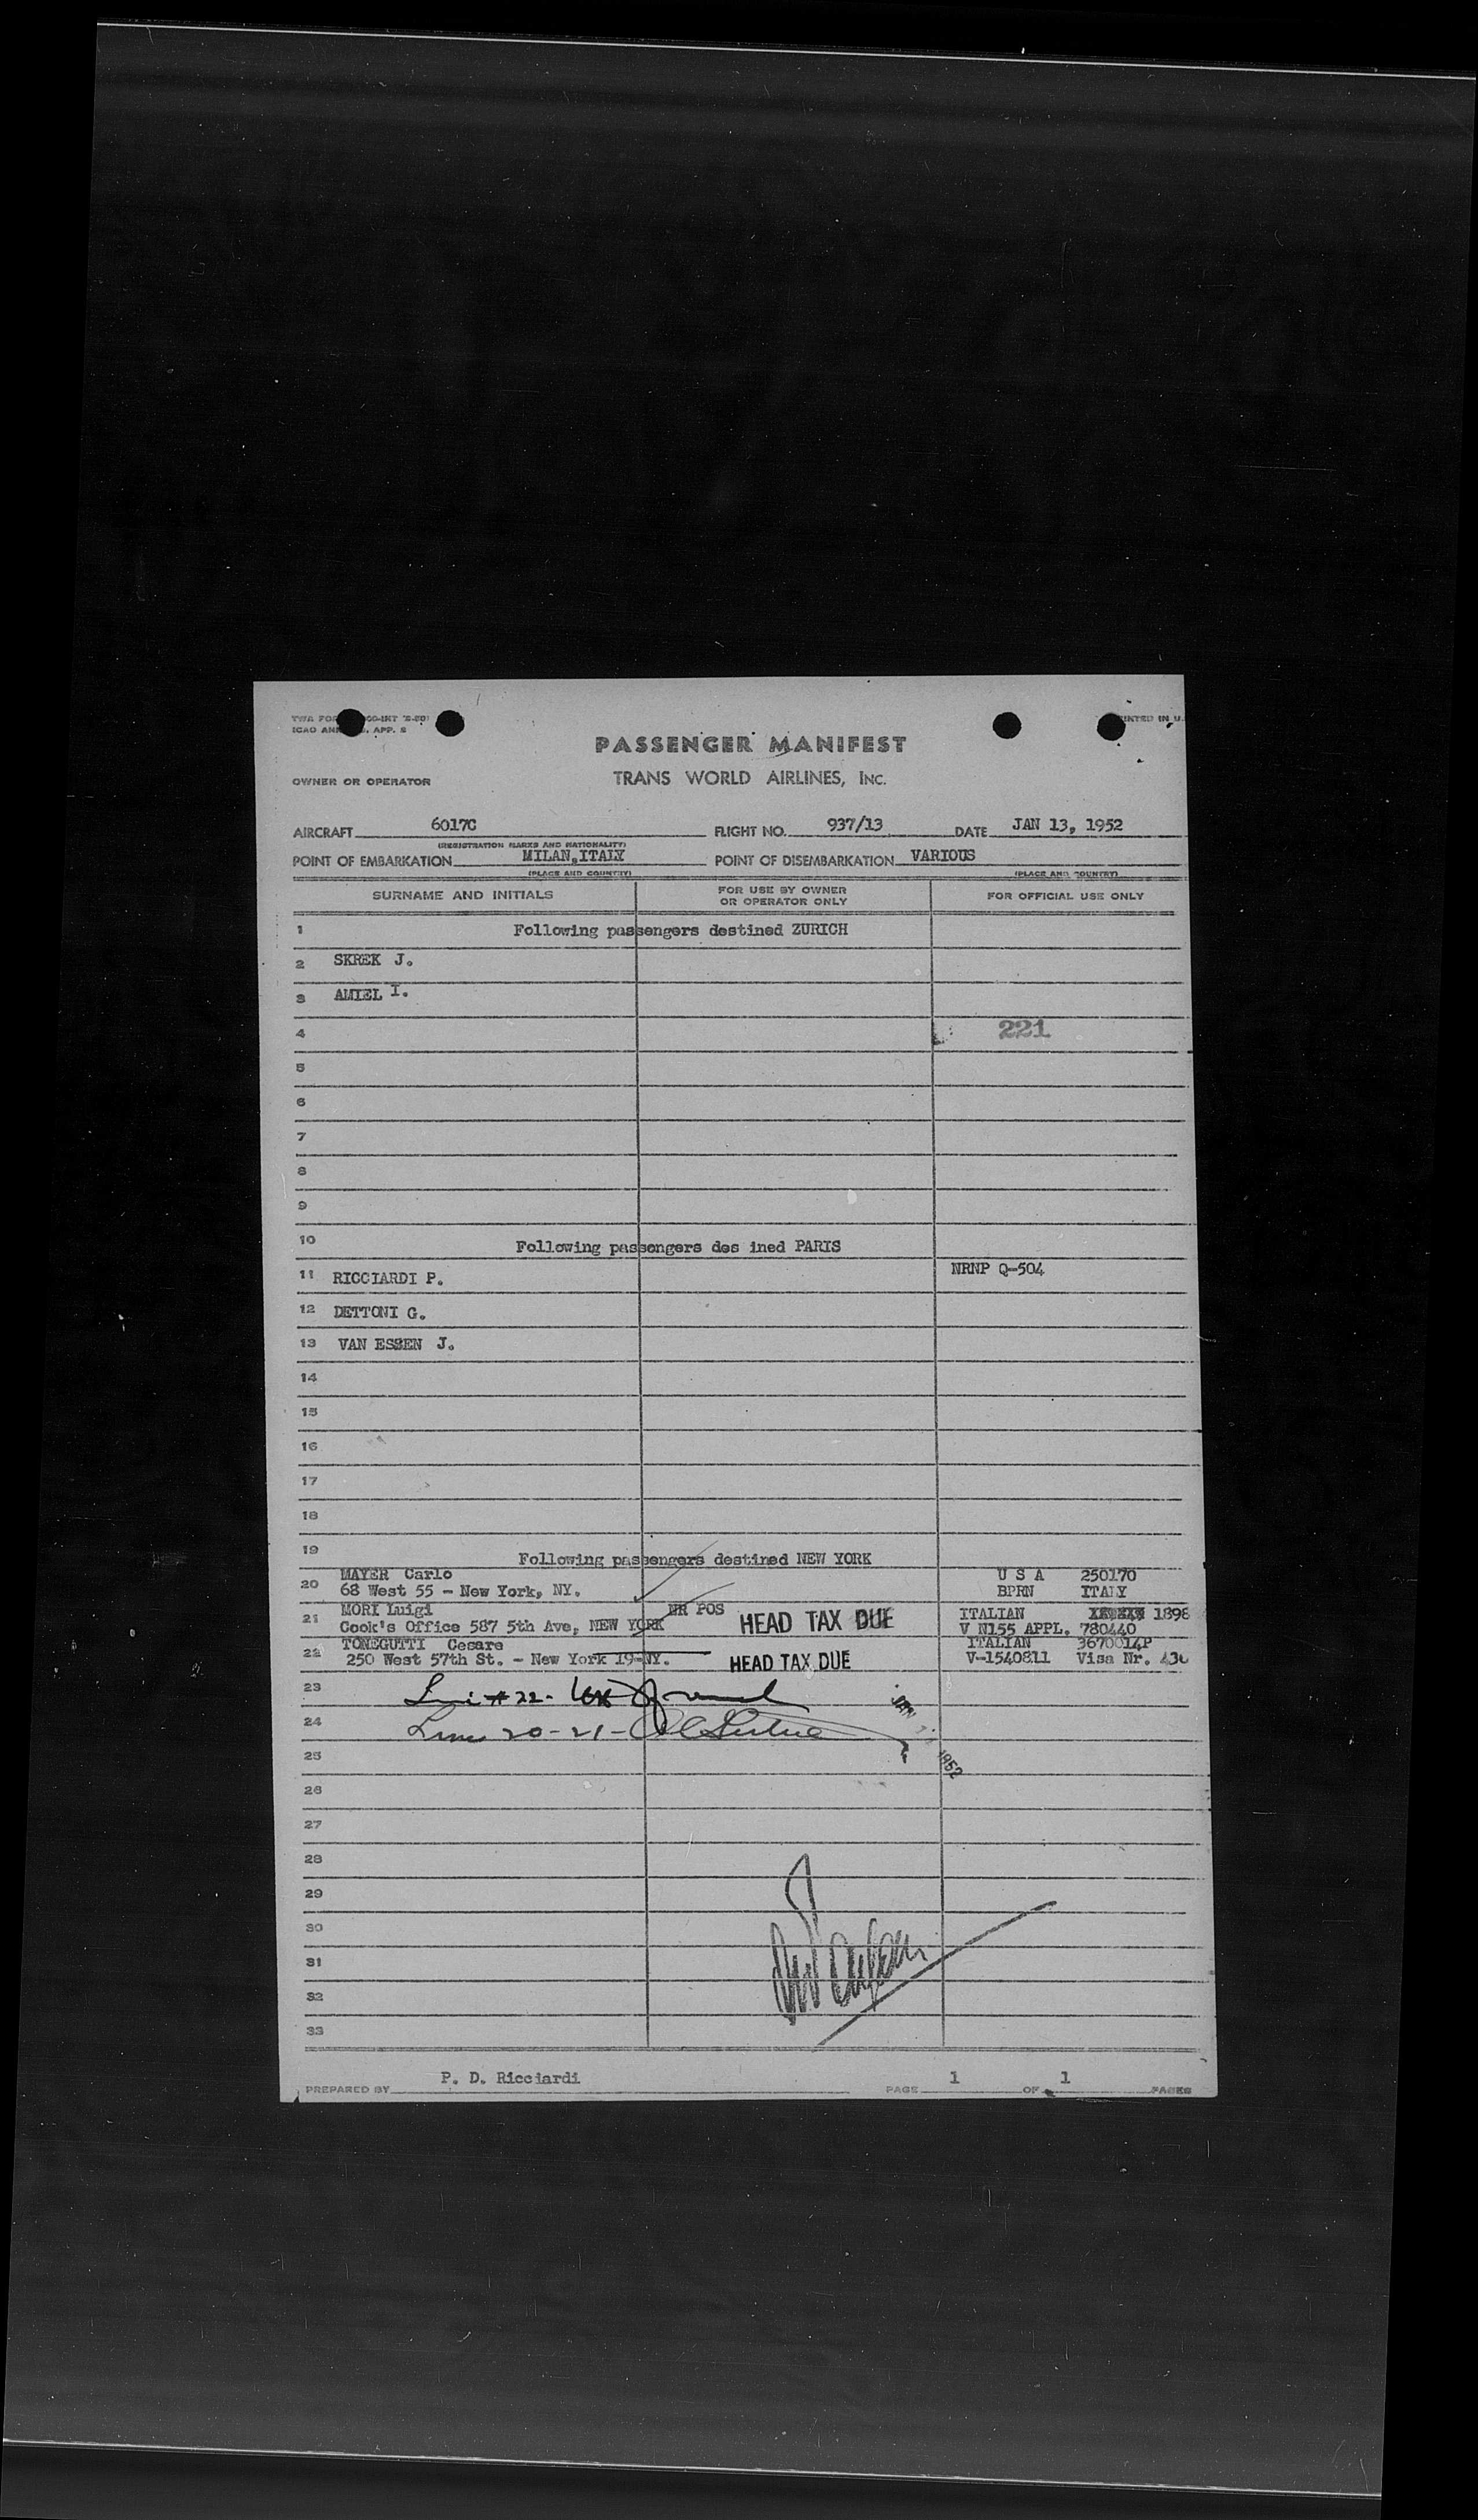 PASSENGER MANIFEST
OWNER OR OPERATOR TRANS WORLD AIRLINES, INC.
AIRCRAFT 6017C FLIGHT NO. 937/13 DATE JAN 13, 1952
(REGISTRATION MARKS AND NATIONALITY)
POINT OF EMBARKATION MILAN, ITALY POINT OF DISEMBARKATION VARIOUS
(PLACE AND COUNTRY) (PLACE AND COUNTRY)
SURNAME AND INITIALS FOR USE BY OWNER OR OPERATOR ONLY FOR OFFICIAL USE ONLY
1 Following passengers destined ZURICH
2 SKREK J.
3 AMIEL I.
4 221
5
6
7
8
9
10 Following passengers des ined PARIS
11 RICCIARDI P. NRNP Q-504
12 DETTONI G.
13 VAN ESSEN J.
14
15
16
17
18
19 Following passengers destined NEW YORK
MAYER Carlo U S A 250170
20 68 West 55 - New York, NY. BPRN ITALY
MORI Luigi NR POS ITALIAN 1898
21 Cook's Office 587 5th Ave, NEW YORK HEAD TAX DUE V N155 APPL. 780440
TONEGUTTI Cesare ITALIAN 3670014P
22 250 West 57th St. - New York 19-NY. HEAD TAX DUE V-1540811 Visa Nr.
23 #22-
24 20-21- JAN 1952
25
26
27
28
29
30
31
32
33
PREPARED BY P. D. Ricciardi PAGE 1 OF 1 PAGES